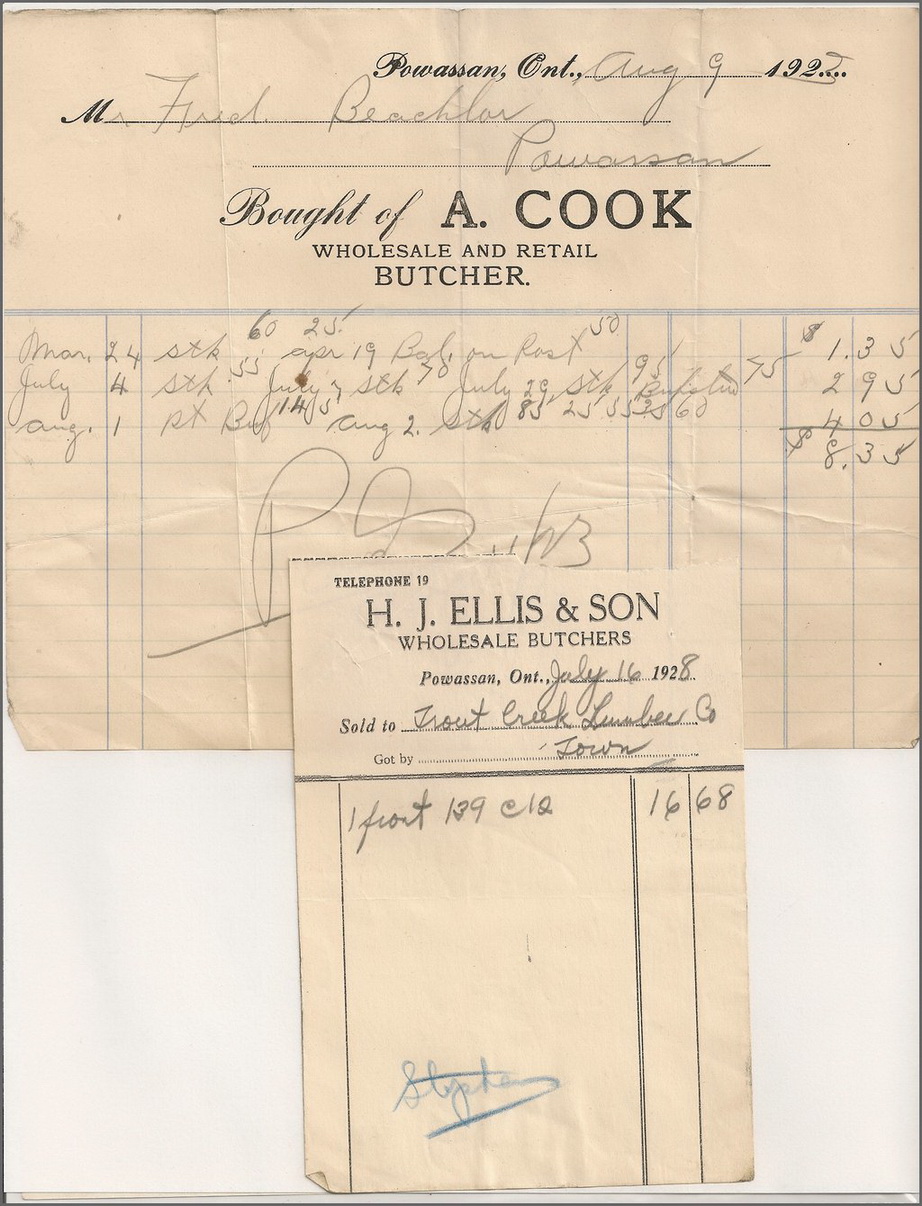 Powassan, Ont., Aug 9 192
Mr Fred. Beachlor
Powassan
Bought of A. COOK
WHOLESALE AND RETAIL
BUTCHER.
Mar. 24 stk 60 25 apr 19 Bal. on Rost 50 $ 1.35
July 4 stk .55 July 7 stk 70 July 29, stk 95 75 2 95
aug. 1 Rt Buf 145 aug 2. stk 85 25 35 60 4 05
$ 8.35
TELEPHONE 19
H. J. ELLIS & SON
WHOLESALE BUTCHERS
Powassan, Ont., July 16 1928.
Sold to Trout Creek Lumber Co
Town
Got by
1 front 139 c 12 16 68